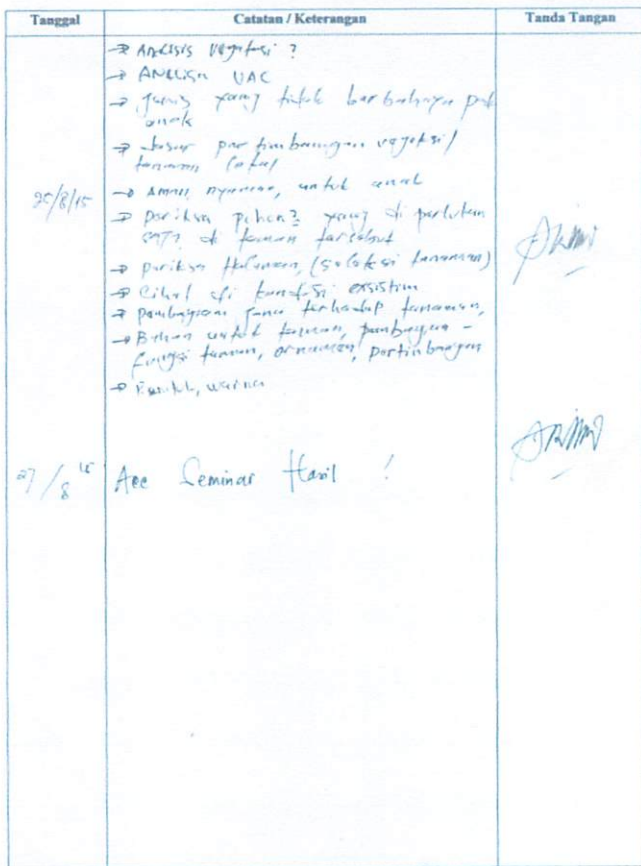 Tanggal Catatan / Keterangan Tanda Tangan
→ Analisis vegetasi ?
→ Analisa VAC
→ jenis yang tidak berbahaya pd
anak
→ dasar pertimbangan vegetasi/
tanaman lokal
25/8/15
→ Aman, nyaman, untuk anak
→ periksa pohon2 yang di perlukan
di taman tersebut
→ periksa Halaman, (seleksi tanaman)
→ Lihat di kondisi exsistim
→ pembagian zona terhadap tanaman,
→ Bahan untuk taman, pembagian -
fungsi taman, ornamen, pertimbangan
→ Bentuk, warna
27/8 15 Acc Seminar Hasil !